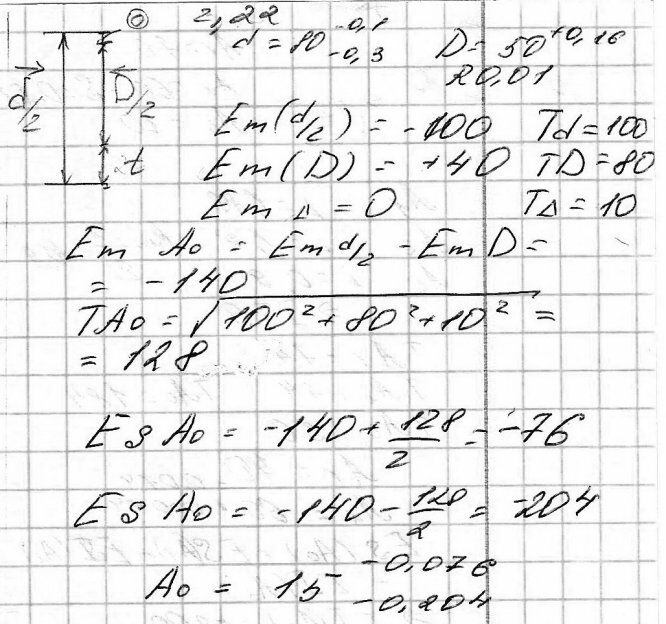 2,22
d = 80 -0,1 -0,3   D = 50 +0,16
R0,01
d/2   D/2
t
Em(d/2) = -100   Td = 100
Em(D) = +40   TD = 80
Em Δ = 0   TΔ = 10
Em Ao = Em d/2 - Em D =
= -140
TAo = √100² + 80² + 10² =
= 128
Es Ao = -140 + 128/2 = -76
Es Ao = -140 - 128/2 = -204
Ao = 15 -0,076 -0,204